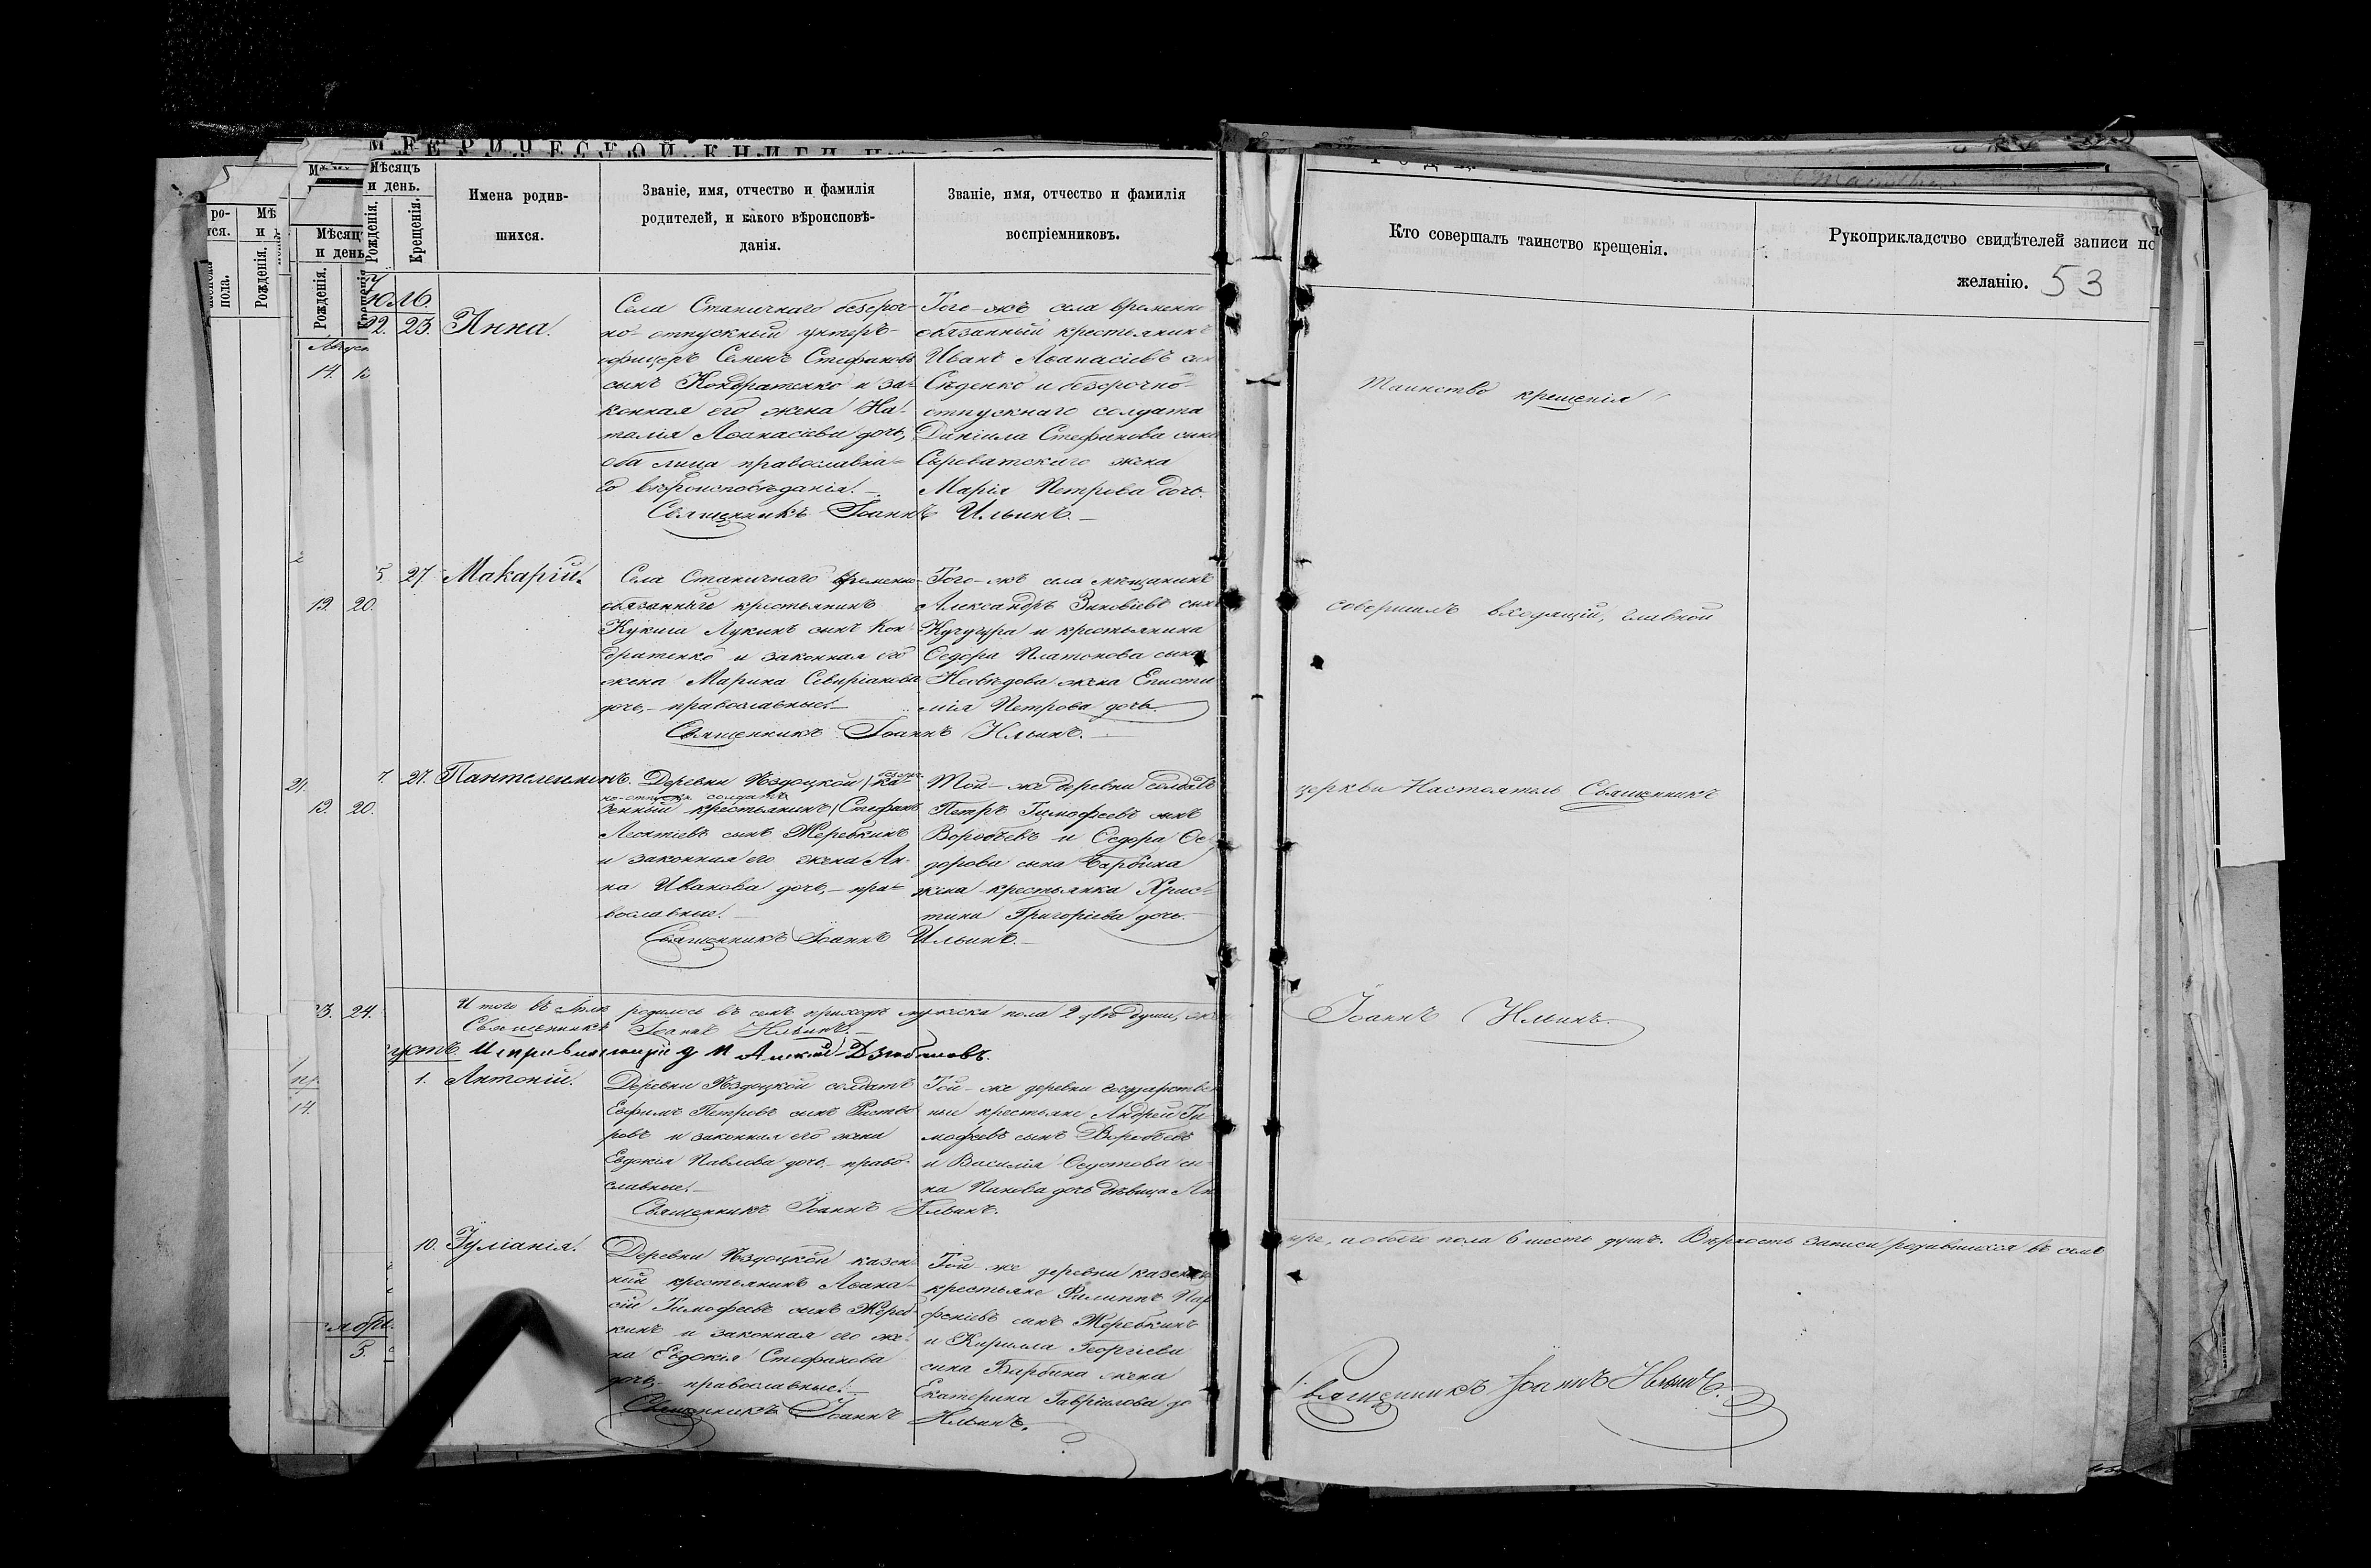 МЕТРИЧЕСКОЙ КНИГИ
Мѣсяцъ
и день.
Рожденія.
Крещенія.
Имена родив-
шихся.
Званіе, имя, отчество и фамилія
родителей, и какого вѣроисповѣ-
данія.
Званіе, имя, отчество и фамилія
воспріемниковъ.
Іюль
22. 23. Анна.
Села Станичнаго безсроч-
но-отпускный унтеръ-
офицеръ Семенъ Стефановъ
сынъ Кондратенко и за-
конная его жена На-
талія Аѳанасіева дочь,
оба лица православна-
го вѣроисповѣданія.
Того-же села временно
обязанный крестьянинъ
Иванъ Аѳанасіевъ сын
Сѣденко и безсрочно-
отпускнаго солдата
Даніила Стефанова сына
Сыроватскаго жена
Марія Петрова дочь.
Священникъ Іоаннъ Ильинъ.
5. 27. Макарій.
Села Станичнаго временно-
обязанный крестьянинъ
Лукинъ сынъ Кон-
дратенко и законная его
жена Марина Севиріанова
дочь, православные.
Того-же села мѣщанинъ
Александръ Зиновіевъ сынъ
Кучугура и крестьянина
Ѳедора Платонова сына
жена Еписти
мія Петрова дочь.
Священникъ Іоаннъ Ильинъ.
7. 27. Пантелеимонъ.
Деревни Ѣздоцкой (ка
но-отпускн. солдатъ
зенный крестьянинъ) Стефанъ
Леонтіевъ сынъ Жеребкинъ
и законная его жена Ан-
на Иванова дочь, пра-
вославные.
Той-же деревни солдатъ
Петръ Тимофеевъ сынъ
Воробьевъ и Ѳедора Ѳе-
дорова сына Барбина
жена крестьянка Хрис-
тина Григоріева дочь.
Священникъ Іоаннъ Ильинъ.
Итого въ Іюлѣ родилось въ семъ приходѣ мужеска пола 2 двѣ души,
Священникъ Іоаннъ Ильинъ.
густъ.
1. Антоній.
Деревни Ѣздоцкой солдатъ
Ефимъ Петровъ сынъ Раство
ровъ и законная его жена
Евдокія Павлова дочь, право-
славные.
Той-же деревни государствен
ные крестьяне Андрей Ти
мофеевъ сынъ Воробьевъ
и Василія сы-
на Панова дочь дѣвица Ан
Священникъ Іоаннъ Ильинъ.
10. Іуліанія.
Деревни Ѣздоцкой казен-
ный крестьянинъ Аѳана-
сій Тимофеевъ сынъ Жереб-
кинъ и законная его же-
на Евдокія Стефанова
дочь, православные.
Той-же деревни казенные
крестьяне Филиппъ Пар
феніевъ сынъ Жеребкинъ
и Кирилла Георгіева
сына Барбина жена
Екатерина Гавріилова до
Священникъ Іоаннъ Ильинъ.
Кто совершалъ таинство крещенія.
Рукоприкладство свидѣтелей записи по
желанію. 53
Таинство крещенія
совершалъ входящій, главной
церкви Настоятель Священникъ
Іоаннъ Ильинъ.
а обоего пола 6 шесть душъ. Вѣрность записи родившихся въ семъ
Священникъ Іоаннъ Ильинъ.
Мѣсяц
и день
Рожденія.
14.
19. 20.
19. 20.
24.
14.
5.
пола.
Рожденія.